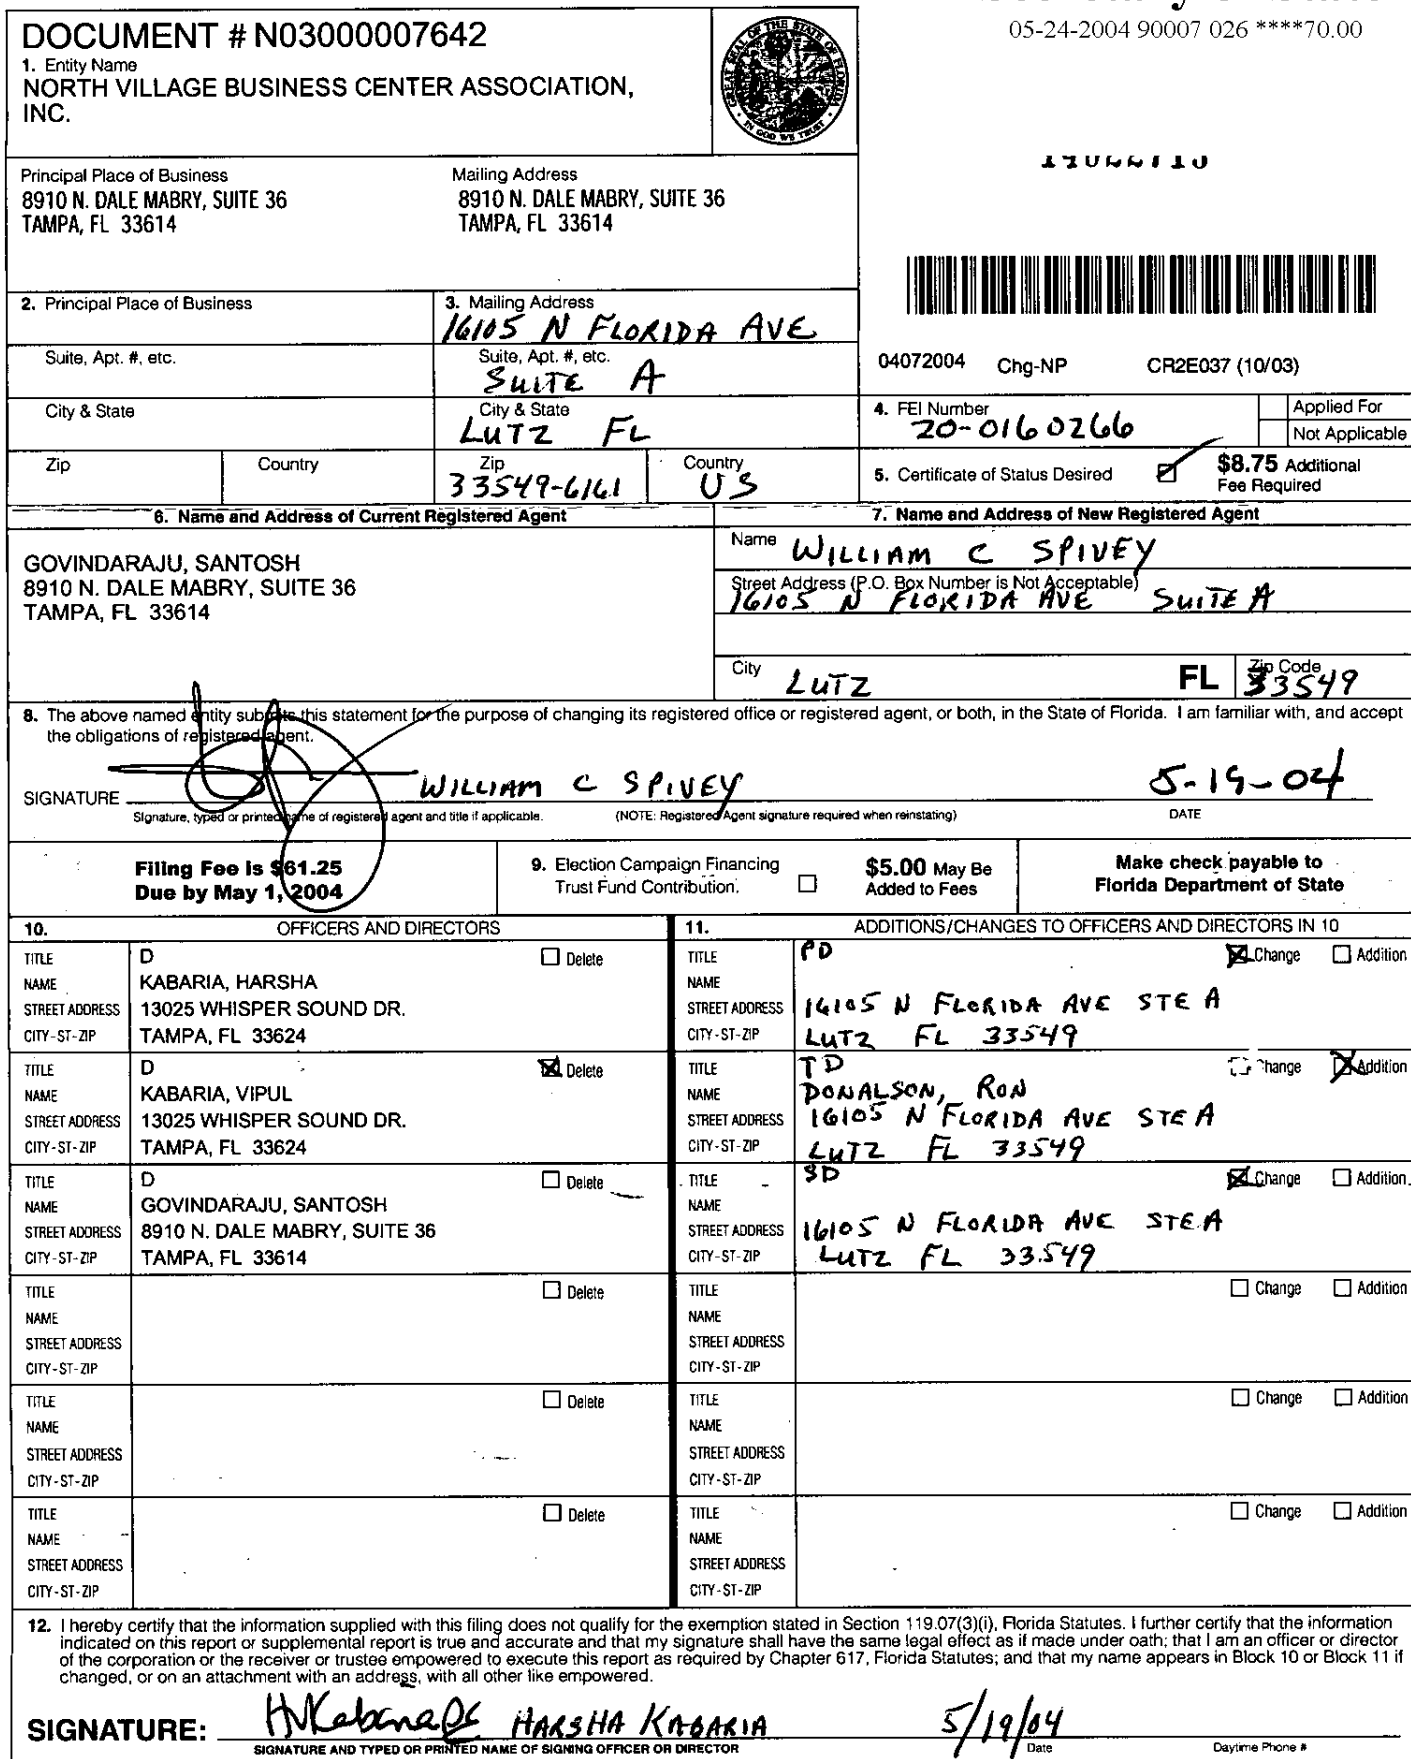 05-24-2004 90007 026 ****70.00
DOCUMENT # N03000007642
1. Entity Name
NORTH VILLAGE BUSINESS CENTER ASSOCIATION,
INC.
GREAT SEAL OF THE STATE OF FLORIDA
IN GOD WE TRUST
Principal Place of Business
8910 N. DALE MABRY, SUITE 36
TAMPA, FL 33614
Mailing Address
8910 N. DALE MABRY, SUITE 36
TAMPA, FL 33614
2. Principal Place of Business
3. Mailing Address
16105 N FLORIDA AVE
Suite, Apt. #, etc.
Suite, Apt. #, etc.
SUITE A
04072004 Chg-NP CR2E037 (10/03)
City & State
City & State
LUTZ FL
4. FEI Number
20-0160266
Applied For
Not Applicable
Zip
Country
Zip
33549-6161
Country
US
5. Certificate of Status Desired
$8.75 Additional
Fee Required
6. Name and Address of Current Registered Agent
GOVINDARAJU, SANTOSH
8910 N. DALE MABRY, SUITE 36
TAMPA, FL 33614
7. Name and Address of New Registered Agent
Name WILLIAM C SPIVEY
Street Address (P.O. Box Number is Not Acceptable)
16105 N FLORIDA AVE SUITE A
City LUTZ FL Zip Code 33549
8. The above named entity submits this statement for the purpose of changing its registered office or registered agent, or both, in the State of Florida. I am familiar with, and accept
the obligations of registered agent.
SIGNATURE WILLIAM C SPIVEY 5-19-04
Signature, typed or printed name of registered agent and title if applicable. (NOTE: Registered Agent signature required when reinstating) DATE
Filing Fee is $61.25
Due by May 1, 2004
9. Election Campaign Financing
Trust Fund Contribution.
$5.00 May Be
Added to Fees
Make check payable to
Florida Department of State
10. OFFICERS AND DIRECTORS
11. ADDITIONS/CHANGES TO OFFICERS AND DIRECTORS IN 10
TITLE D Delete
NAME KABARIA, HARSHA
STREET ADDRESS 13025 WHISPER SOUND DR.
CITY-ST-ZIP TAMPA, FL 33624
TITLE PD Change Addition
NAME
STREET ADDRESS 16105 N FLORIDA AVE STE A
CITY-ST-ZIP LUTZ FL 33549
TITLE D Delete
NAME KABARIA, VIPUL
STREET ADDRESS 13025 WHISPER SOUND DR.
CITY-ST-ZIP TAMPA, FL 33624
TITLE TD Change Addition
NAME DONALSON, RON
STREET ADDRESS 16105 N FLORIDA AVE STE A
CITY-ST-ZIP LUTZ FL 33549
TITLE D Delete
NAME GOVINDARAJU, SANTOSH
STREET ADDRESS 8910 N. DALE MABRY, SUITE 36
CITY-ST-ZIP TAMPA, FL 33614
TITLE SD Change Addition
NAME
STREET ADDRESS 16105 N FLORIDA AVE STE A
CITY-ST-ZIP LUTZ FL 33549
TITLE Delete
NAME
STREET ADDRESS
CITY-ST-ZIP
TITLE Change Addition
NAME
STREET ADDRESS
CITY-ST-ZIP
TITLE Delete
NAME
STREET ADDRESS
CITY-ST-ZIP
TITLE Change Addition
NAME
STREET ADDRESS
CITY-ST-ZIP
TITLE Delete
NAME
STREET ADDRESS
CITY-ST-ZIP
TITLE Change Addition
NAME
STREET ADDRESS
CITY-ST-ZIP
12. I hereby certify that the information supplied with this filing does not qualify for the exemption stated in Section 119.07(3)(i), Florida Statutes. I further certify that the information
indicated on this report or supplemental report is true and accurate and that my signature shall have the same legal effect as if made under oath; that I am an officer or director
of the corporation or the receiver or trustee empowered to execute this report as required by Chapter 617, Florida Statutes; and that my name appears in Block 10 or Block 11 if
changed, or on an attachment with an address, with all other like empowered.
SIGNATURE: HARSHA KABARIA 5/19/04
SIGNATURE AND TYPED OR PRINTED NAME OF SIGNING OFFICER OR DIRECTOR Date Daytime Phone #